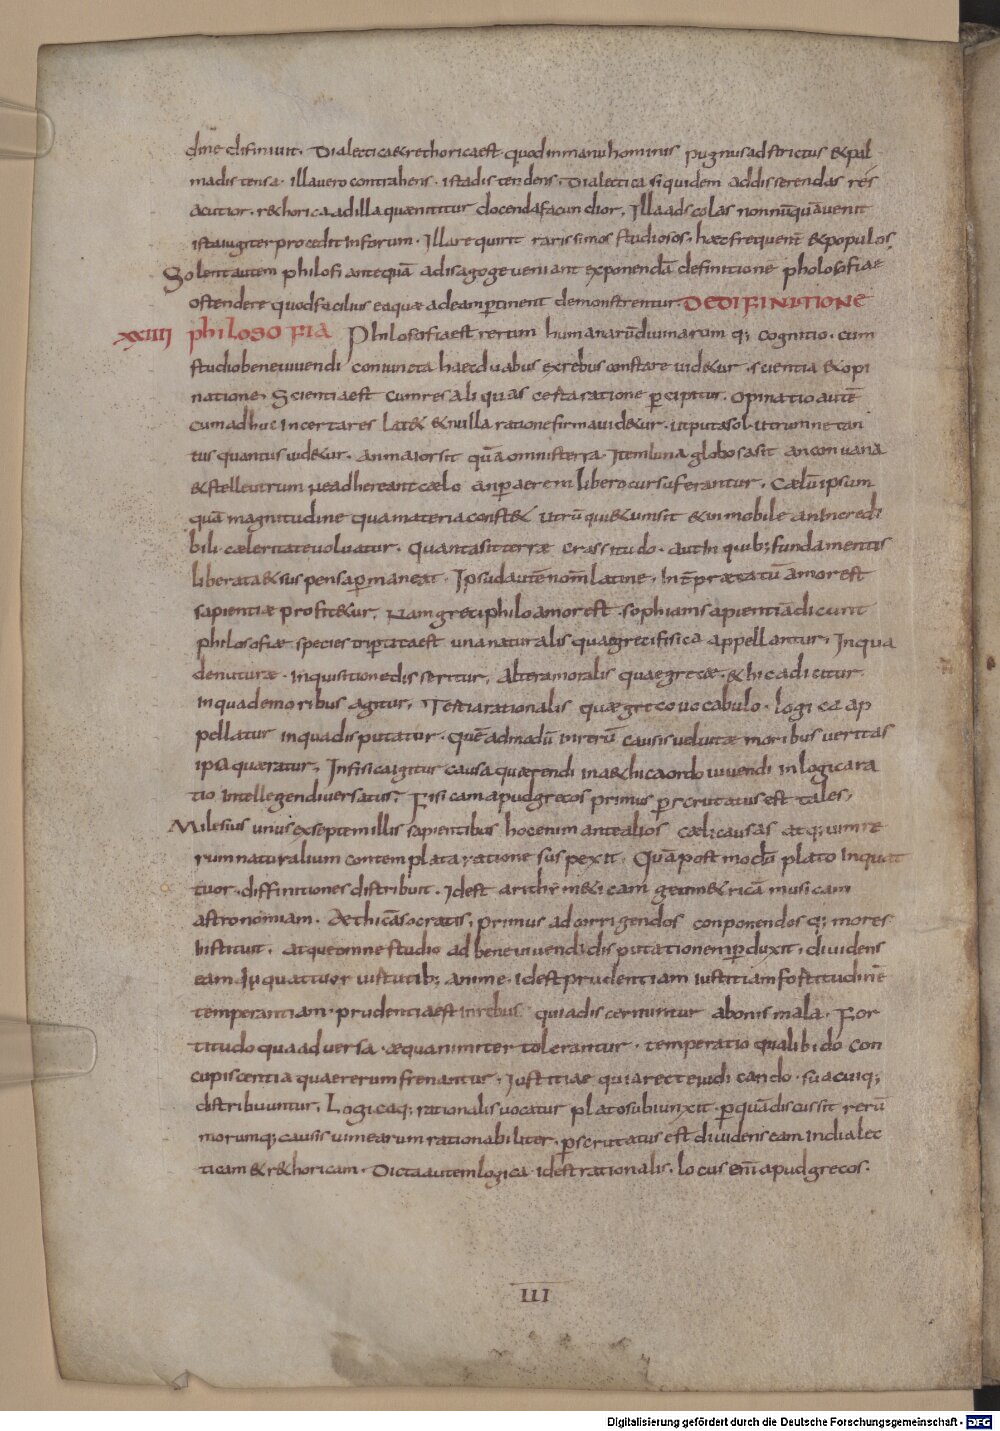 dine difiniuit. Dialectica & rethorica est quod in manu hominis pugnus adstrictus & pal
madistensa. illa uero contrahens. ista distendens. Dialectica siquidem ad disserendas res
acutior. r&horica ad illa quae nititur docenda facundior. Illa ad scolas nonnūquā uenit
ista iugiter procedit in forum. Illa requirit rarissimos studiosos. haec frequenter & populos
Solent autem philosofi antequā ad isagoge ueniant exponendā definitionē pholosofiae
ostendere quo facilius ea quae ad eam ꝑtinent demonstrentur. DE DIFINITIONE
XXIIII philosofia Philosofia est rerum humanarū diuinarum q; cognitio. cum
studio bene uiuendi coniuncta haec duabus ex rebus constare uid&ur. scientia & opi
natione. Scientia est cum res aliqua certa ratione ꝑcipitur. Opinatio autē
cum adhuc incerta res lat& & nulla ratione firma uid&ur. ut puta sol. utrumne tan
tus quantus uid&ur. an maior sit quā omnis terra. Item luna globosa sit an conuaua
& stelle utrum ne adhereant caelo an ꝑ aerem libero cursu ferantur. Caelū ipsum
quā magnitudine qua materia const& utrū qui&um sit & inmobile an incredi
bili caeleritate uoluatur. Quanta sit terrae crassitudo. aut in quib; fundamentis
liberata & suspensa ꝑmaneat. Ipsud autē nomen latine. interpraetatū amorē
sapientiae profit&ur. Nam greci philo amor est. sophiam sapientiā dicunt
philosofiae species tripertita est una naturalis qua greci fisica appellantur. In qua
de naturae inquisitione disseritur. Altera moralis quae grecae. &hica dicitur
in qua de moribus agitur. Tertia rationalis quae greco uocabulo. logica ap
pellatur in qua disputatur. Quē admodū in rerū causis uel uitae moribus ueritas
ipsa quaeratur. In fisica igitur causa quaerendi in a&hica ordo uiuendi in logica ra
tio intellegendi uersatur. Fisicam apud grecos primus ꝑscrutatus est tales.
Milesius unus ex septem illis sapientibus hoc enim ante alios caeli causas atq; uim re
rum naturalium contemplata ratione suspexit. Quā postmodū plato in quat
tuor. diffinitiones distribuit. Idest arithm&icam geum&ricā musicam
astronomiam. Aethicā socratis. primus ad corrigendos conponendos q; mores
instituit. atque omne studiū ad bene uiuendi disputationem ꝑduxit. diuidens
eam in quattuor uirtutib; anime. idest prudentiam iustitiam fortitudinē
temperantiam. prudentia est in rebus qui a discernuntur a bonis mala. For
titudo qua aduersa. aequanimiter tolerantur. temperatio qua libido con
cupiscentia quae rerum frenantur. Iustitiae quia recte iudicando. sua cuiq;
distribuuntur. Logica q; rationalis uocatur plato subiunxit. ꝑ quā discussit rerū
morumq; causis uim earum rationabiliter. ꝑscrutatus est diuidens eam in dialec
ticam & r&horicam. Dicta autem logica idest rationalis. locus enī apud grecos.
III
Digitalisierung gefördert durch die Deutsche Forschungsgemeinschaft - DFG